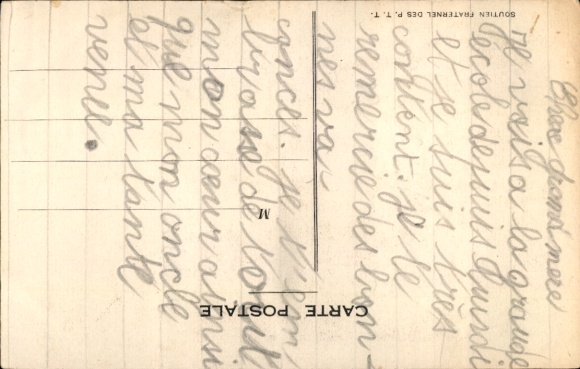 Chère grand mère
Je vais a la grande
école depuis lundi
et je suis très
content. je te
remercie des bon-
nes va-
cances. je t'em
brasse de tout
mon cœur ainsi
que mon oncle
et ma tante
renee.
CARTE POSTALE
M
SOUTIEN FRATERNEL DES P. T. T.